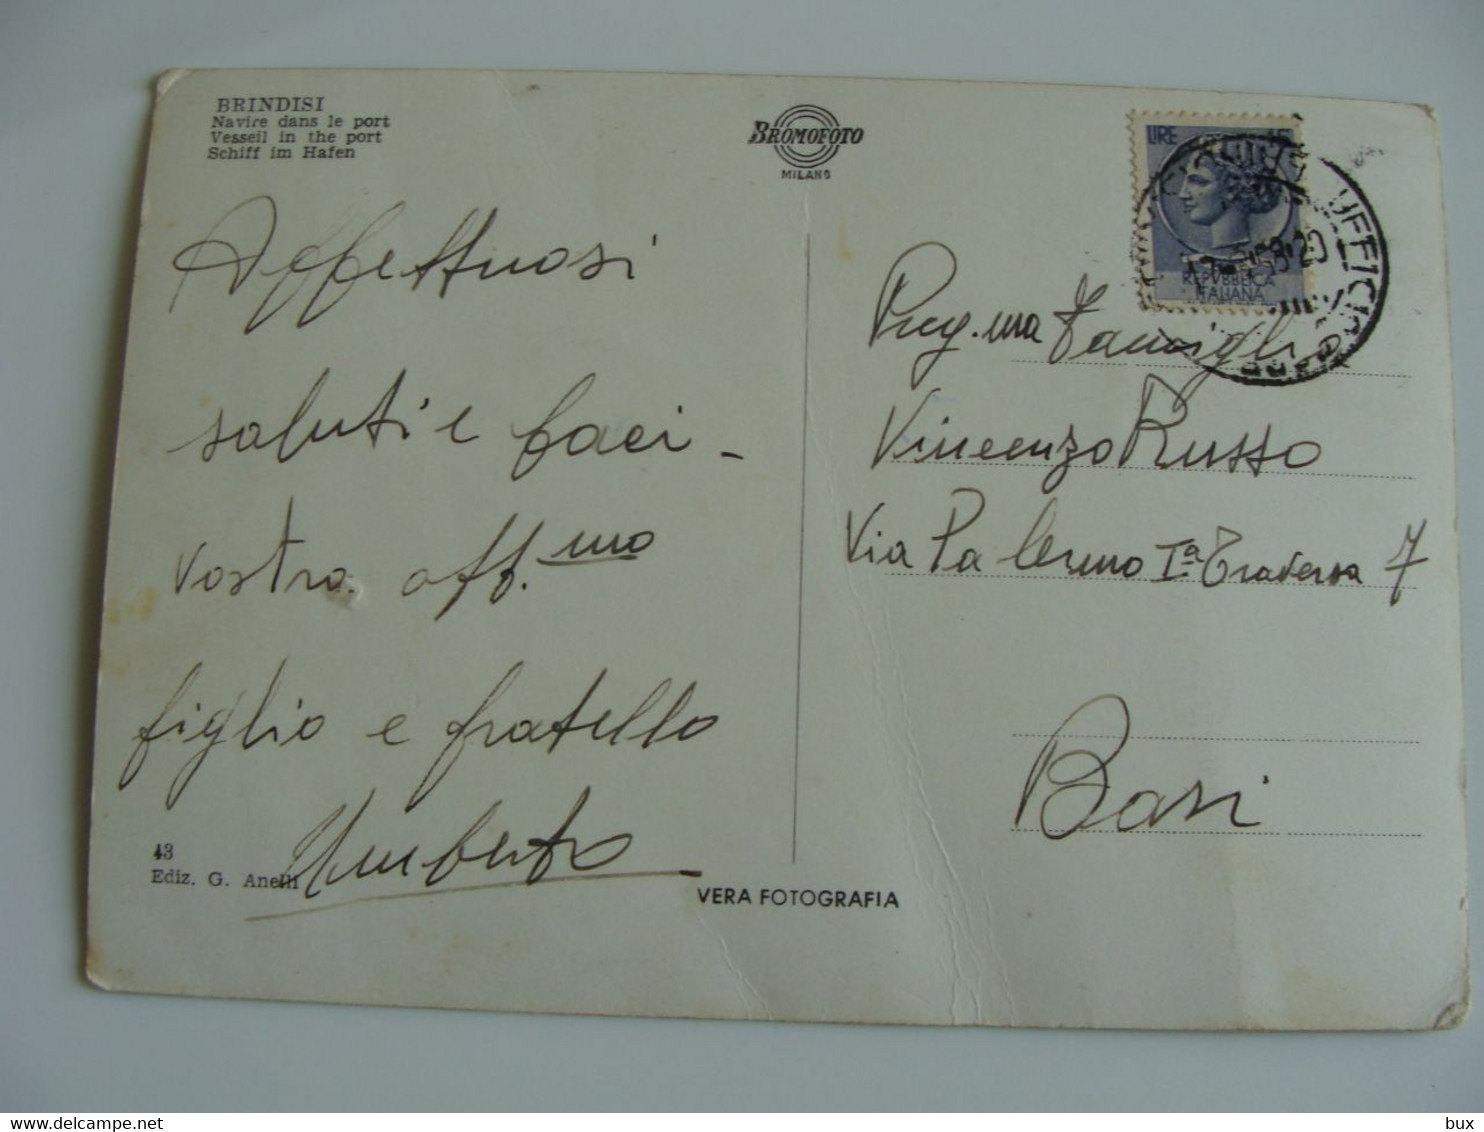 BRINDISI
Navire dans le port
Vesseil in the port
Schiff im Hafen
BROMOFOTO
MILANO
LIRE 15
REPVBBLICA
ITALIANA
UFFICIO
Affettuosi
saluti e baci -
Vostro aff.mo
figlio e fratello
Umberto
Preg.ma Famigli
Vincenzo Russo
Via Palermo Iª Traversa 7
Bari
43
Ediz. G. Anelli
VERA FOTOGRAFIA
bux